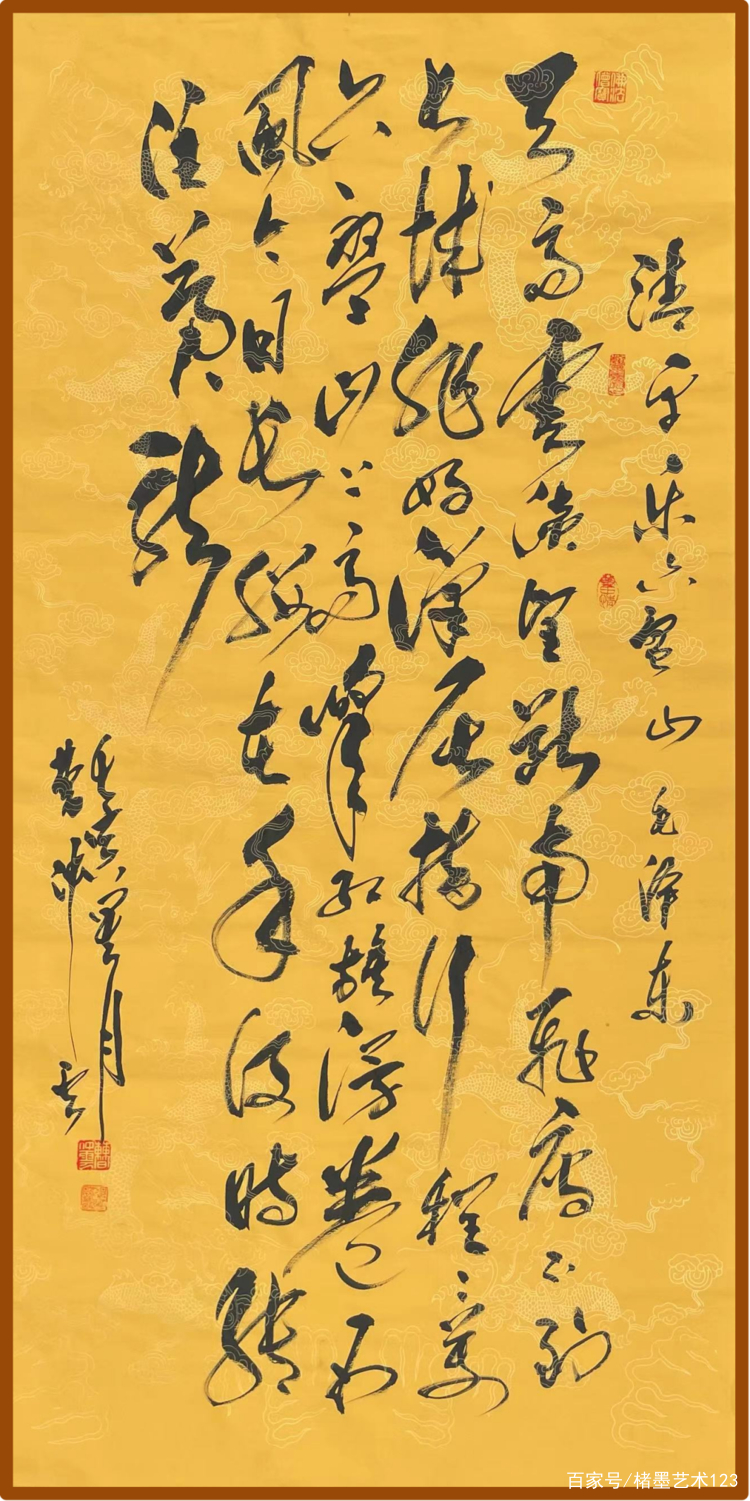 清平乐六盘山 毛泽东
天高雲淡望斷南飛雁不到
长城非好漢屈指行程二萬
六盤山上高峰红旗漫卷西
風今日长缨在手何時縛
住蒼龍
百家号/楮墨艺术123